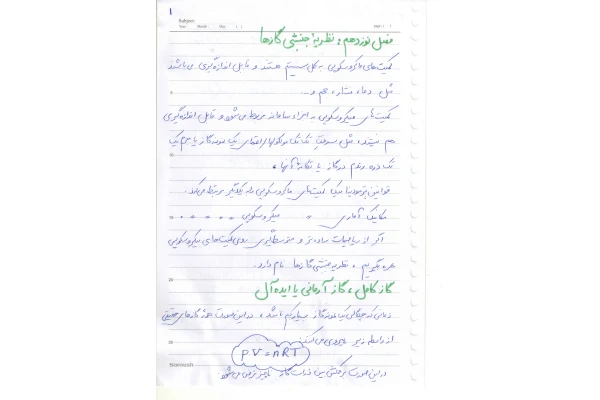 ۱
Subject:
Year: Month: Day:
فصل نوزدهم : نظریهٔ جنبشی گازها
کمیت‌های ماکروسکوپی به کل سیستم هستند و قابل اندازه‌گیری می‌باشند
مثل دما، فشار، حجم و...
کمیت‌های میکروسکوپی به اجزاء سامانه مربوط می‌شود و قابل اندازه‌گیری
هم نیستند، مثل سرعت تک تک مولکولها یا اتمهای یک نمونه گاز یا جرم یک
تک ذره
قوانین ترمودینامیک کمیت‌های ماکروسکوپی را به یکدیگر مرتبط می‌کند.
مکانیک آماری " میکروسکوپی " " " " "
اگر از ریاضیات ساده‌تر و متوسط‌گیری روی کمیت‌های میکروسکوپی
بهره بگیریم، نظریه جنبشی گازها نام دارد.
گاز کامل ، گاز آرمانی یا ایده‌آل
زمانی که چگالی یک نمونه گاز بسیار کم باشد، در این صورت همهٔ گازهای حقیقی
از رابطه زیر پیروی می‌کنند:
PV = nRT
در این صورت بر هم‌کنش بین ذرات گاز ناچیز فرض می‌شود.